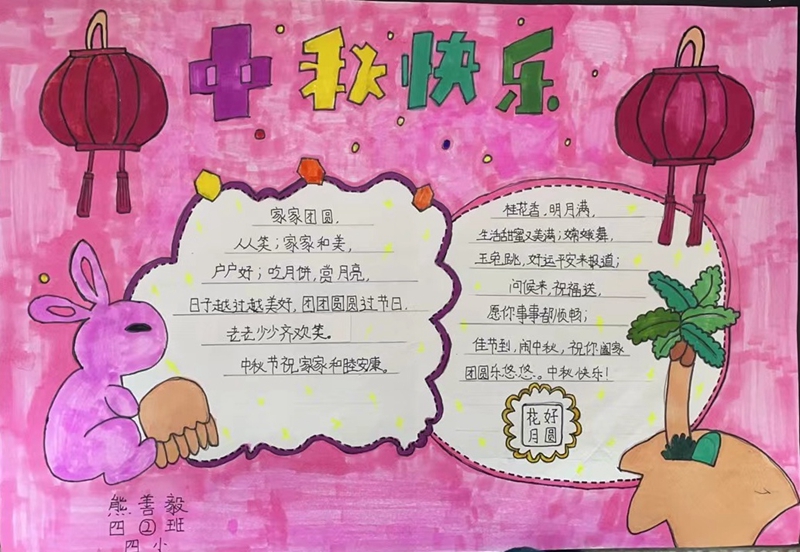 中秋快乐
家家团圆，
人人笑；家家和美，
户户好；吃月饼，赏月亮，
日子越过越美好，团团圆圆过节日，
老老少少齐欢笑。
中秋节祝家家和睦安康。
桂花香，明月满，
生活甜蜜又美满；嫦娥舞，
玉兔跳，好运平安来报道；
问候来，祝福送，
愿你事事都顺畅；
佳节到，闹中秋，祝你阖家
团圆乐悠悠。中秋快乐！
花好
月圆
熊善毅
四②班
四小